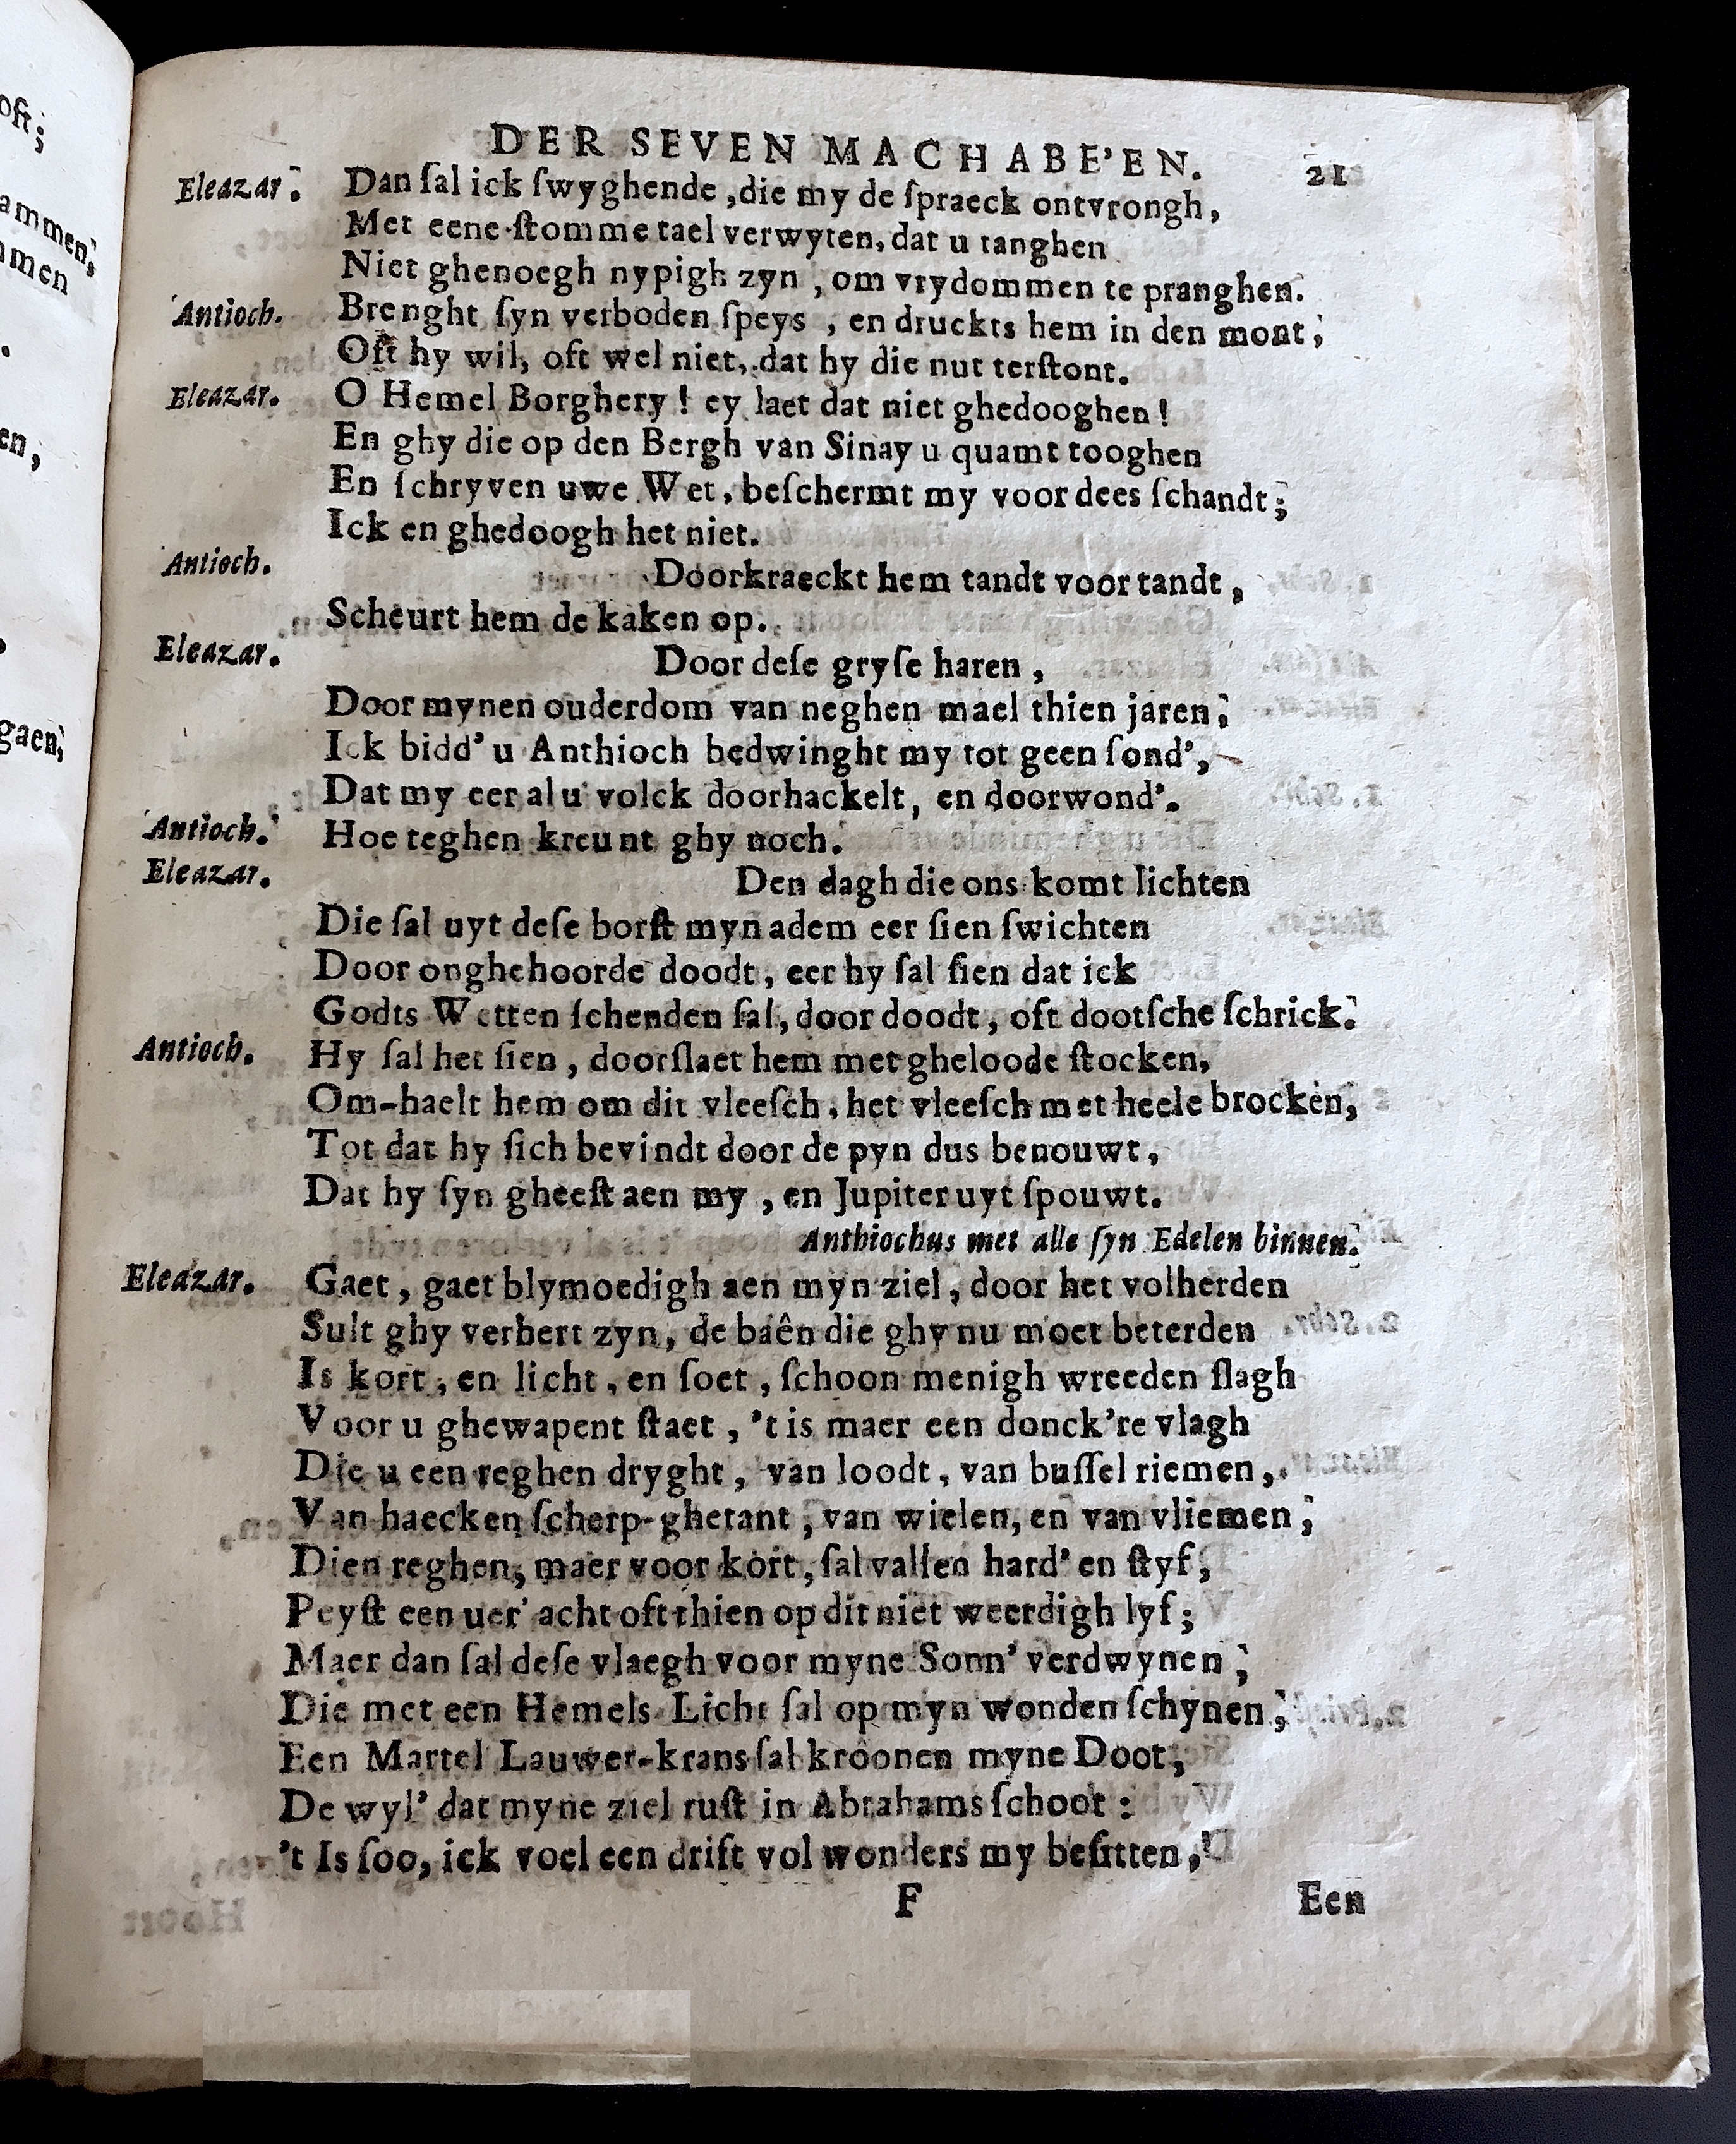 oft;
ammen,
mmen
en,
gaen,
DER SEVEN MACHABE'EN. 21
Eleazar. Dan ſal ick ſwyghende, die my de ſpraeck ontvrongh,
Met eene ſtomme tael verwyten, dat u tanghen
Niet ghenoegh nypigh zyn, om vrydommen te pranghen.
Antioch. Brenght ſyn verboden ſpeys, en druckts hem in den mont;
Oft hy wil, oft wel niet, dat hy die nut terſtont.
Eleazar. O Hemel Borghery! ey laet dat niet ghedooghen!
En ghy die op den Bergh van Sinay u quamt tooghen
En ſchryven uwe Wet, beſchermt my voor dees ſchandt;
Ick en ghedoogh het niet.
Antioch. Doorkraeckt hem tandt voor tandt,
Scheurt hem de kaken op.
Eleazar. Door deſe gryſe haren,
Door mynen ouderdom van neghen mael thien jaren;
Ick bidd' u Anthioch bedwinght my tot geen ſond',
Dat my eer al u volck doorhackelt, en doorwond'.
Antioch. Hoe teghen kreunt ghy noch.
Eleazar. Den dagh die ons komt lichten
Die ſal uyt deſe borſt myn adem eer ſien ſwichten
Door onghehoorde doodt, eer hy ſal ſien dat ick
Godts Wetten ſchenden ſal, door doodt, oft dootſche ſchrick.
Antioch. Hy ſal het ſien, doorſlaet hem met gheloode ſtocken,
Om-haelt hem om dit vleeſch, het vleeſch met heele brocken,
Tot dat hy ſich bevindt door de pyn dus benouwt,
Dat hy ſyn gheeſt aen my, en Jupiter uyt ſpouwt.
Anthiochus met alle ſyn Edelen binnen.
Eleazar. Gaet, gaet blymoedigh aen myn ziel, door het volherden
Sult ghy verhert zyn, de baên die ghy nu moet beterden
Is kort, en licht, en ſoet, ſchoon menigh wreeden ſlagh
Voor u ghewapent ſtaet, 't is maer een donck're vlagh
Die u een reghen dryght, van loodt, van buſſel riemen,
Van haecken ſcherp-ghetant, van wielen, en van vliemen;
Dien reghen, maer voor kort, ſal vallen hard' en ſtyf,
Peyſt een uer' acht oft thien op dit niet weerdigh lyf;
Maer dan ſal deſe vlaegh voor myne Sonn' verdwynen;
Die met een Hemels Licht ſal op myn wonden ſchynen;
Een Martel Lauwer-krans ſal kroonen myne Doot,
De wyl' dat myne ziel ruſt in Abrahams ſchoot:
't Is ſoo, ick voel een drift vol wonders my beſitten,
F Een